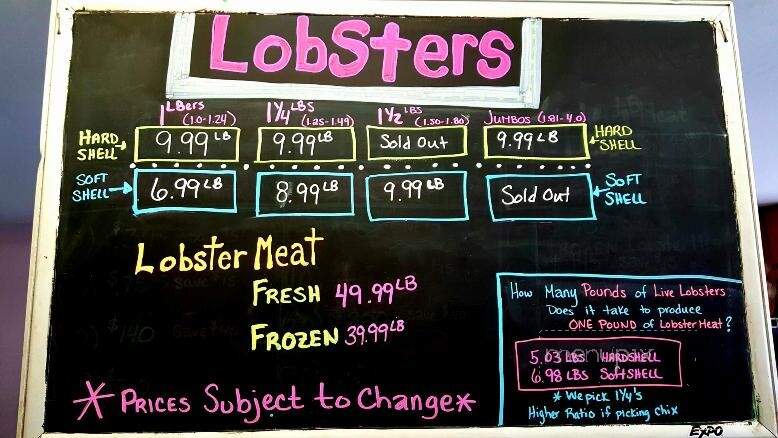 LobSters
1 LBers 1¼ LBS 1½ LBS
(1.0-1.24) (1.25-1.49) (1.50-1.80) JUMBOS (1.81-4.0)
HARD SHELL 9.99 LB 9.99 LB Sold Out 9.99 LB HARD SHELL
SOFT SHELL 6.99 LB 8.99 LB 9.99 LB Sold Out SOFT SHELL
Lobster Meat
FRESH 49.99 LB
FROZEN 39.99 LB
* PRICES Subject to Change *
How Many Pounds of Live Lobsters
Does it take to produce
ONE POUND of Lobster Meat?
5.03 LBS HARDSHELL
6.98 LBS SoftSHELL
* We pick 1¼'s
Higher Ratio if picking chix
EXPO